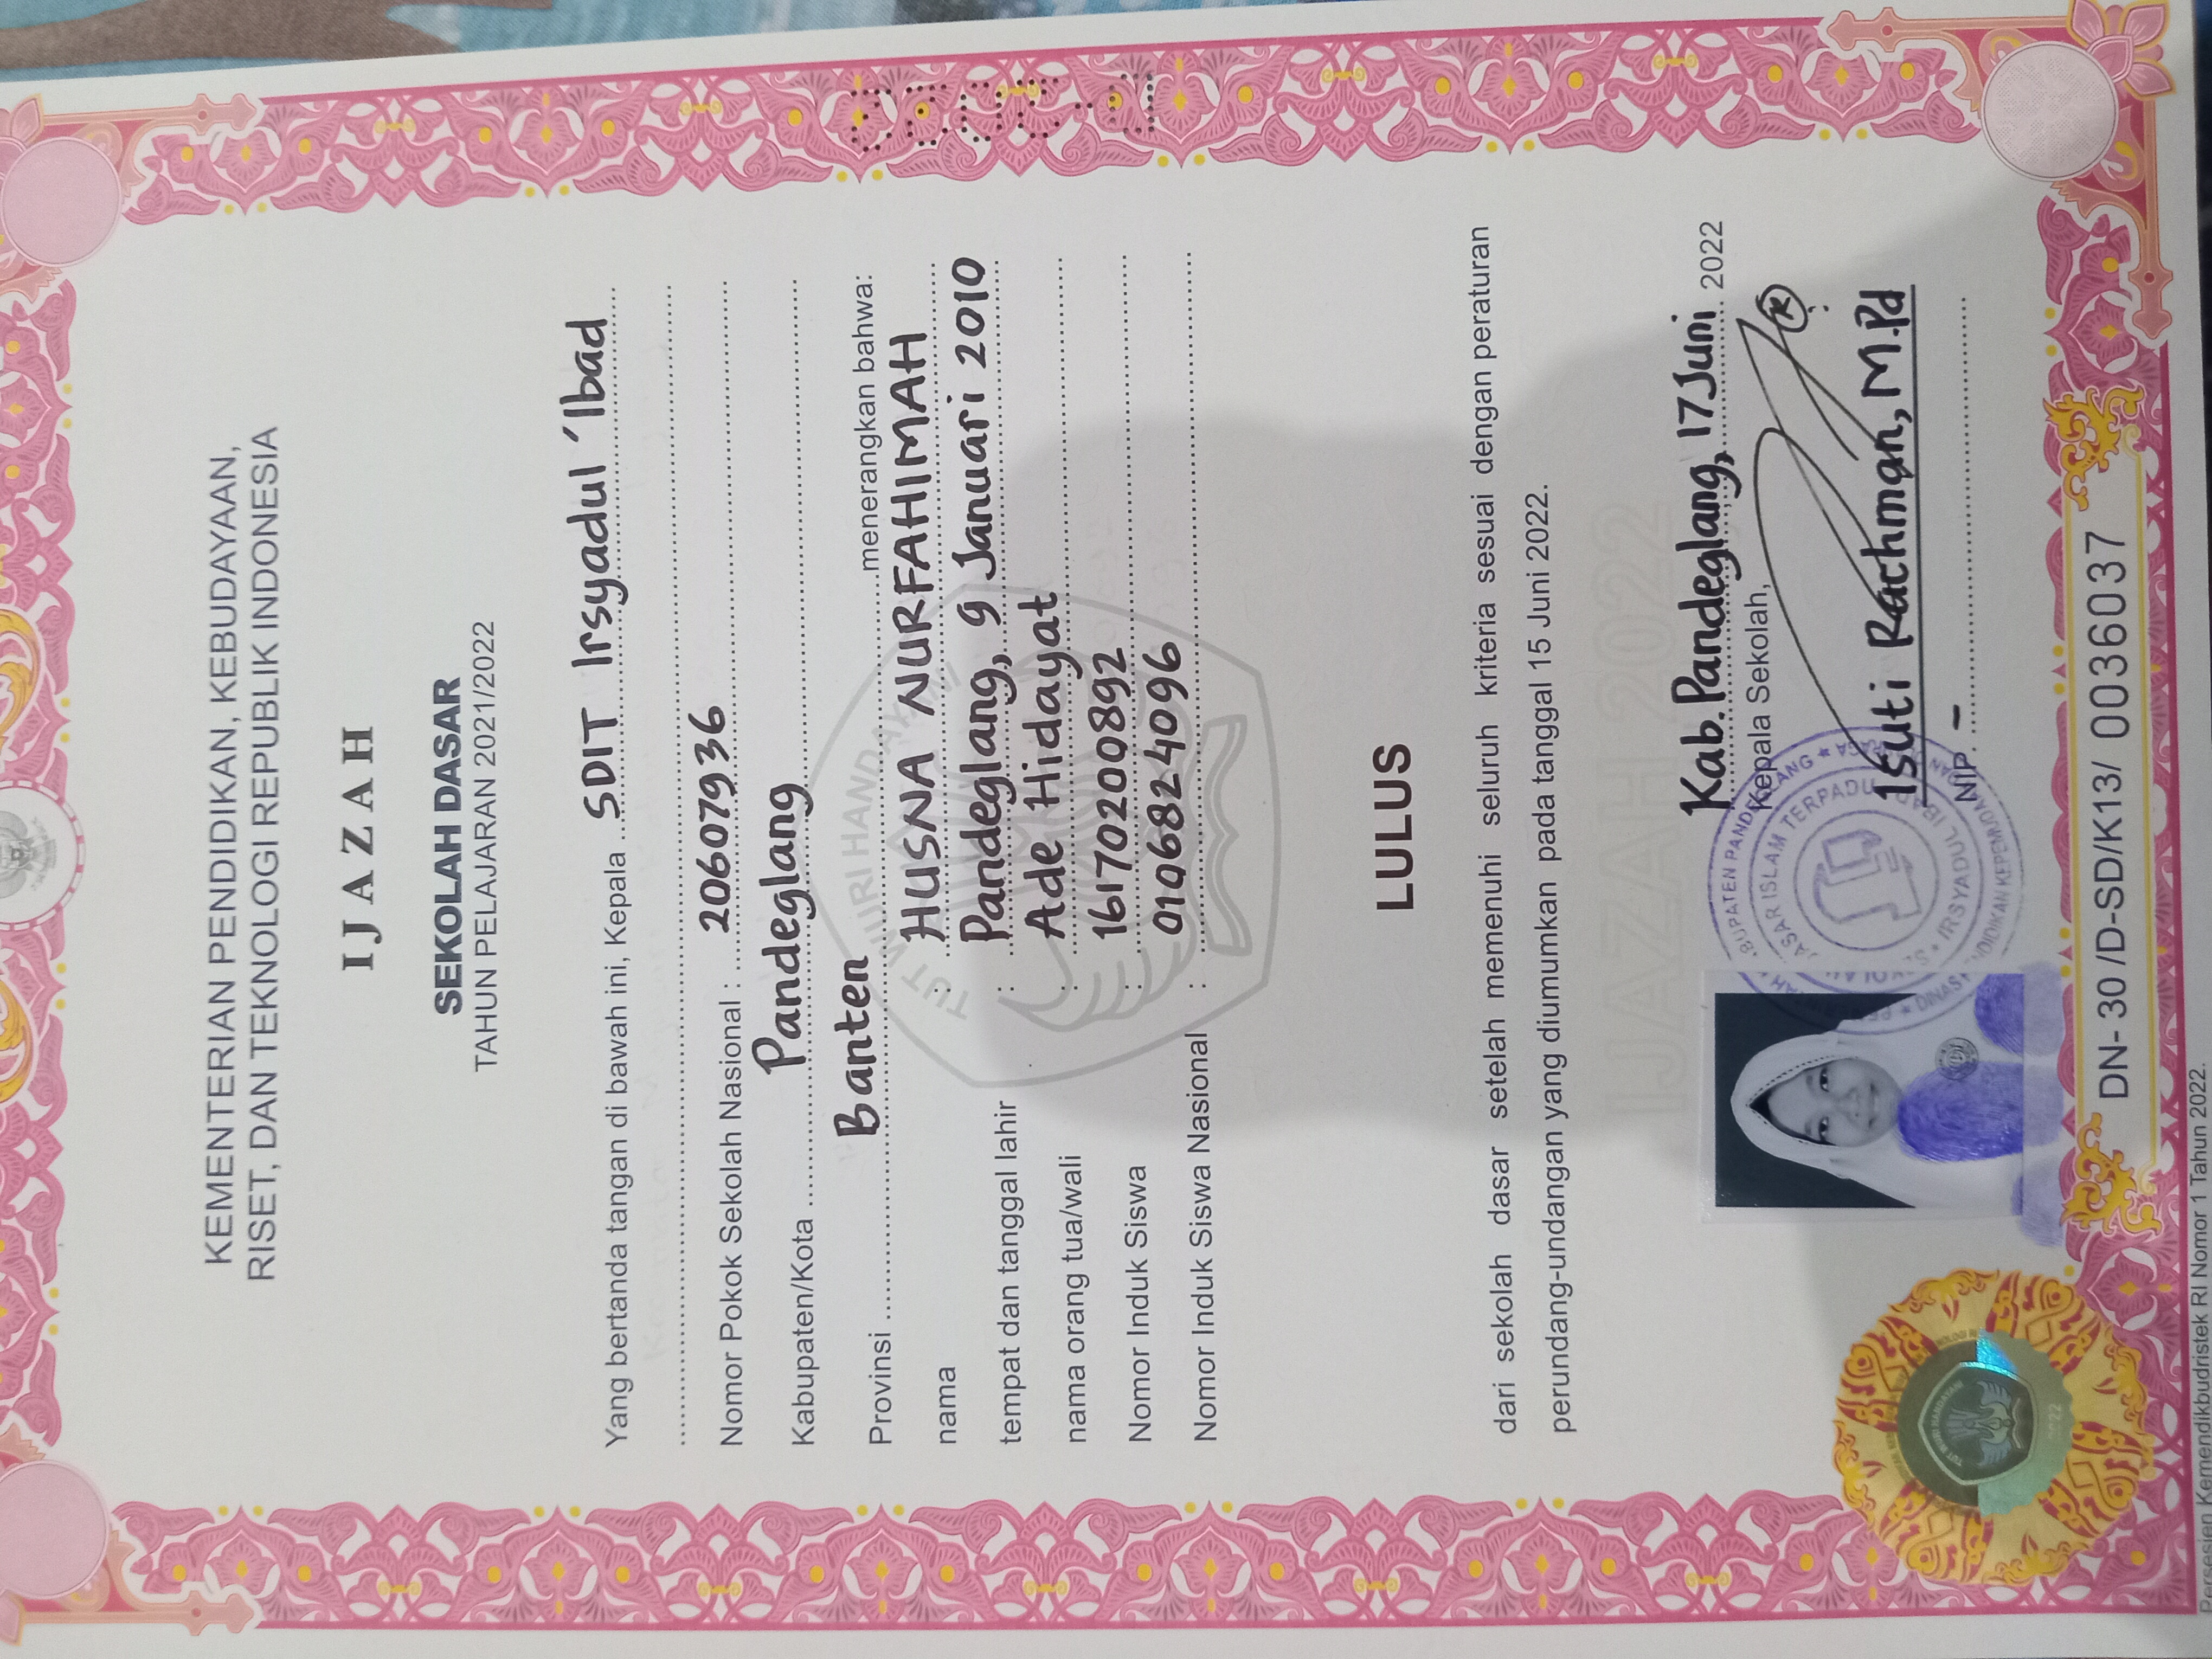 KEMENTERIAN PENDIDIKAN, KEBUDAYAAN,
RISET, DAN TEKNOLOGI REPUBLIK INDONESIA
IJAZAH
SEKOLAH DASAR
TAHUN PELAJARAN 2021/2022
Yang bertanda tangan di bawah ini, Kepala SDIT Irsyadul 'Ibad
Nomor Pokok Sekolah Nasional : 20607936
Kabupaten/Kota Pandeglang
Provinsi Banten menerangkan bahwa:
TUT WURI HANDAYANI
nama : HUSNA NURFAHIMAH
tempat dan tanggal lahir : Pandeglang, 9 Januari 2010
nama orang tua/wali : Ade Hidayat
Nomor Induk Siswa : 16170200892
Nomor Induk Siswa Nasional : 0106824096
LULUS
dari sekolah dasar setelah memenuhi seluruh kriteria sesuai dengan peraturan
perundang-undangan yang diumumkan pada tanggal 15 Juni 2022.
IJAZAH 2022
Kab. Pandeglang, 17 Juni 2022
Kepala Sekolah,
Isuti Rachman, M.Pd
NIP. -
KABUPATEN PANDEGLANG
DASAR ISLAM TERPADU
IRSYADUL IBAD
TUT WURI HANDAYANI
2022
DN- 30 /D-SD/K13/ 0036037
Persesjen Kemendikbudristek RI Nomor 1 Tahun 2022.